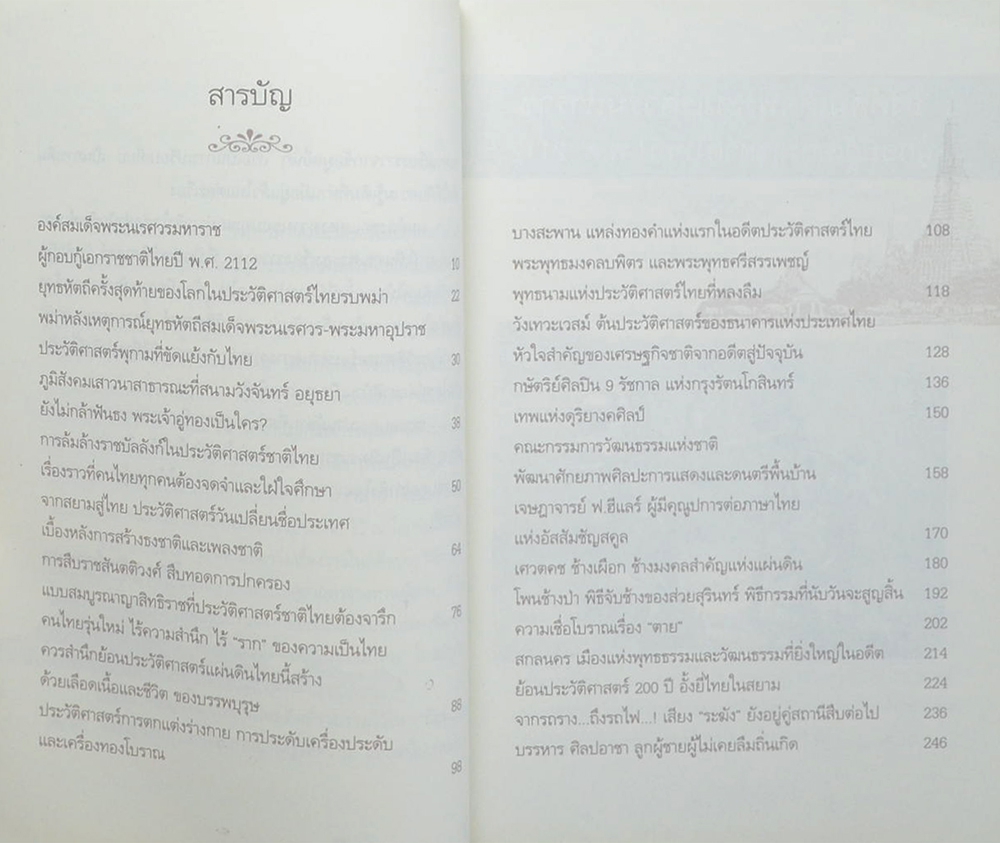 สารบัญ
องค์สมเด็จพระนเรศวรมหาราช
ผู้กอบกู้เอกราชชาติไทยปี พ.ศ. 2112 10
ยุทธหัตถีครั้งสุดท้ายของโลกในประวัติศาสตร์ไทยรบพม่า 22
พม่าหลังเหตุการณ์ยุทธหัตถีสมเด็จพระนเรศวร-พระมหาอุปราช
ประวัติศาสตร์พุกามที่ขัดแย้งกับไทย 30
ภูมิสังคมเสาวนาสาธารณะที่สนามวังจันทร์ อยุธยา
ยังไม่กล้าฟันธง พระเจ้าอู่ทองเป็นใคร? 38
การล้มล้างราชบัลลังก์ในประวัติศาสตร์ชาติไทย
เรื่องราวที่คนไทยทุกคนต้องจดจำและใฝ่ใจศึกษา 50
จากสยามสู่ไทย ประวัติศาสตร์วันเปลี่ยนชื่อประเทศ
เบื้องหลังการสร้างธงชาติและเพลงชาติ 64
การสืบราชสันตติวงศ์ สืบทอดการปกครอง
แบบสมบูรณาญาสิทธิราชที่ประวัติศาสตร์ชาติไทยต้องจารึก 76
คนไทยรุ่นใหม่ ไร้ความสำนึก ไร้ “ราก” ของความเป็นไทย
ควรสำนึกย้อนประวัติศาสตร์แผ่นดินไทยนี้สร้าง
ด้วยเลือดเนื้อและชีวิต ของบรรพบุรุษ 88
ประวัติศาสตร์การตกแต่งร่างกาย การประดับเครื่องประดับ
และเครื่องทองโบราณ 98
บางสะพาน แหล่งทองคำแห่งแรกในอดีตประวัติศาสตร์ไทย 108
พระพุทธมงคลบพิตร และพระพุทธศรีสรรเพชญ์
พุทธนามแห่งประวัติศาสตร์ไทยที่หลงลืม 118
วังเทวะเวสม์ ต้นประวัติศาสตร์ของธนาคารแห่งประเทศไทย
หัวใจสำคัญของเศรษฐกิจชาติจากอดีตสู่ปัจจุบัน 128
กษัตริย์ศิลปิน 9 รัชกาล แห่งกรุงรัตนโกสินทร์ 136
เทพแห่งดุริยางคศิลป์ 150
คณะกรรมการวัฒนธรรมแห่งชาติ
พัฒนาศักยภาพศิลปะการแสดงและดนตรีพื้นบ้าน 158
เจษฎาจารย์ ฟ.ฮีแลร์ ผู้มีคุณูปการต่อภาษาไทย
แห่งอัสสัมชัญสคูล 170
เศวตคช ช้างเผือก ช้างมงคลสำคัญแห่งแผ่นดิน 180
โพนช้างป่า พิธีจับช้างของส่วยสุรินทร์ พิธีกรรมที่นับวันจะสูญสิ้น 192
ความเชื่อโบราณเรื่อง “ตาย” 202
สกลนคร เมืองแห่งพุทธธรรมและวัฒนธรรมที่ยิ่งใหญ่ในอดีต 214
ย้อนประวัติศาสตร์ 200 ปี อั้งยี่ไทยในสยาม 224
จากรถราง...ถึงรถไฟ...! เสียง “ระฆัง” ยังอยู่คู่สถานีสืบต่อไป 236
บรรหาร ศิลปอาชา ลูกผู้ชายผู้ไม่เคยลืมถิ่นเกิด 246